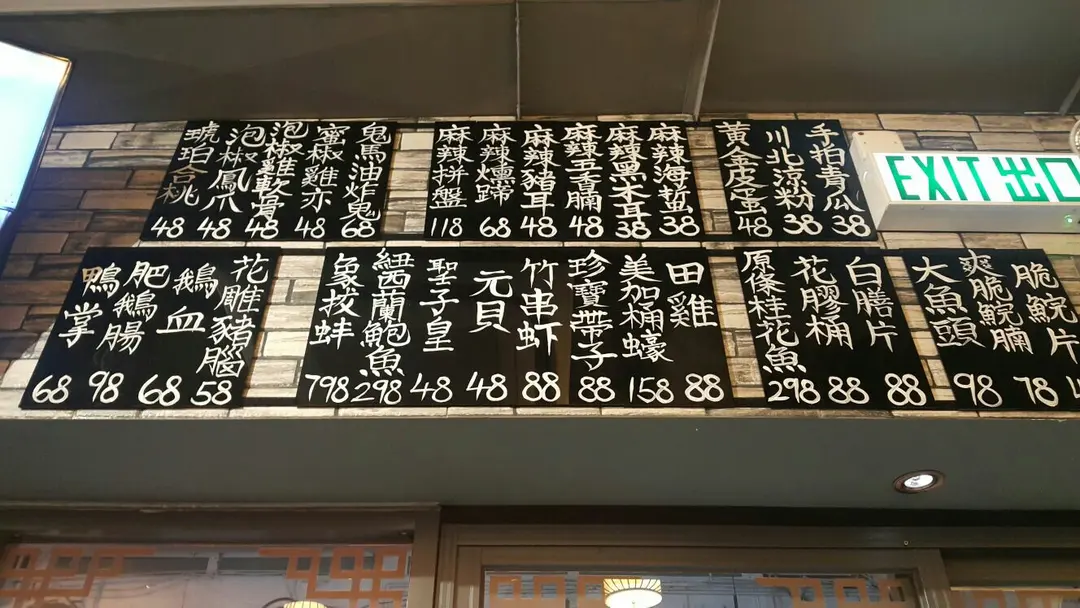 琥珀合桃 48
泡椒鳳爪 48
泡椒雞軟骨 48
蜜椒雞亦 48
鬼馬油炸鬼 68
麻辣拼盤 118
麻辣燻蹄 68
麻辣豬耳 48
麻辣五香腩 48
麻辣黑木耳 38
麻辣海蜇 38
黃金皮蛋 48
川北涼粉 38
手拍青瓜 38
EXIT 出口
鴨掌 68
肥鵝腸 98
鵝血 68
花雕豬腦 58
象拔蚌 798
紐西蘭鮑魚 298
聖子皇 48
元貝 48
竹串虾 88
珍寶帶子 88
美加桶蠔 158
田雞 88
原條桂花魚 298
花膠桶 88
白膳片 88
大魚頭 98
爽脆鯇腩 78
脆鯇片